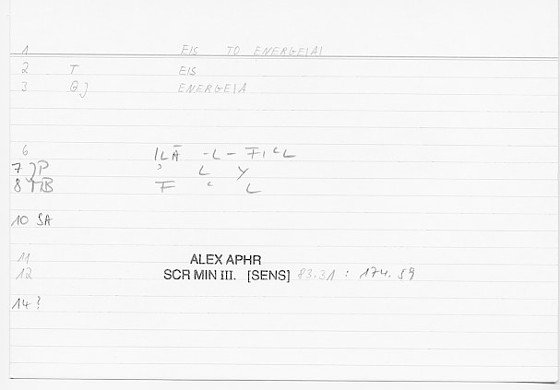 1 EIS TO ENERGEIAI
2 T EIS
3 GJ ENERGEIA
6 ILĀ -L- FIcL
7 JP ʾ L Y
8 MB F ʿ L
10 SA
11 ALEX APHR
12 SCR MIN III. [SENS] 83.31 : 174.59
14 ?